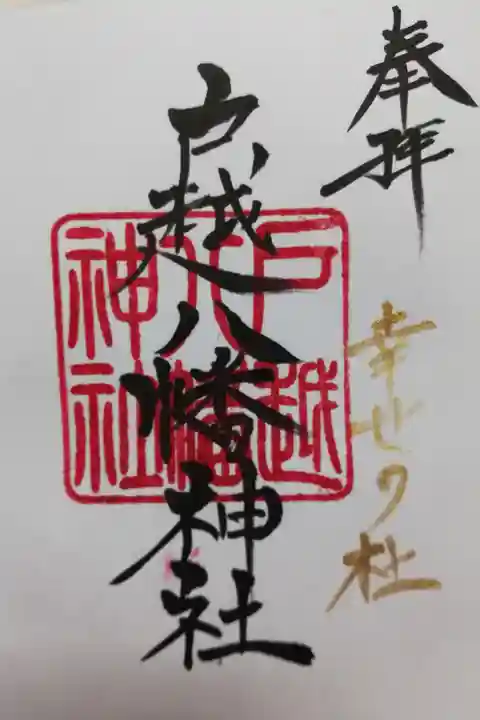 奉拝
幸せの杜
戸越八幡神社
戸越
八幡
神社